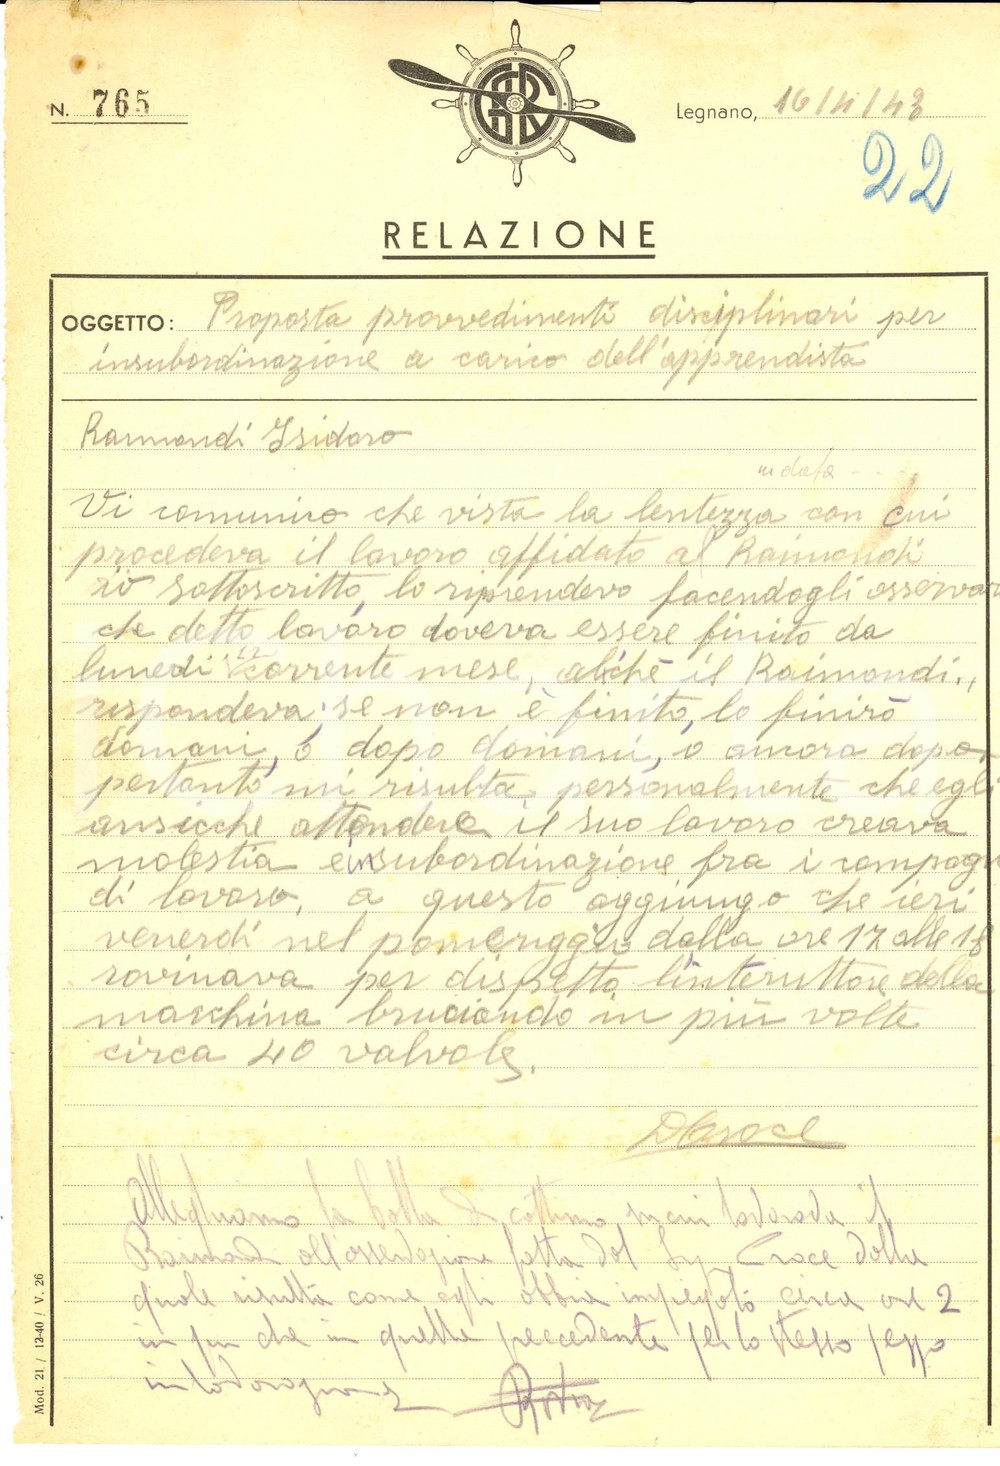 N. 765
Legnano, 16/4/43
22
RELAZIONE
OGGETTO: Proposta provvedimenti disciplinari per
insubordinazione a carico dell'apprendista
Raimondi Isidoro
in data
Vi comunico che vista la lentezza con cui
procedeva il lavoro affidato al Raimondi
io sottoscritto, lo riprendevo facendogli osservar
che detto lavoro doveva essere finito da
lunedi 12 corrente mese, alichè il Raimondi.,
rispondeva: se non è finito, lo finirò
domani, o dopo domani, o ancora dopo,
pertanto mi risulta personalmente che egli
ansicche attendere il suo lavoro creava
molestia e insubordinazione fra i compagni
di lavoro, a questo aggiungo che ieri
venerdi nel pomeriggio dalla ore 17 alle 18
rovinava per dispetto l'interuttore della
macchina bruciando in più volte
circa 40 valvole.
DCroce
Alleghiamo la bolla di cottimo su cui lavorava il
Raimondi all'osservazione fatta dal Sig. Croce dalla
quale risulta come egli abbia impiegato circa ore 2
in piu che in quella precedente per lo stesso pezzo
in lavorazione
Mod. 21 / 12-40 / V. 26